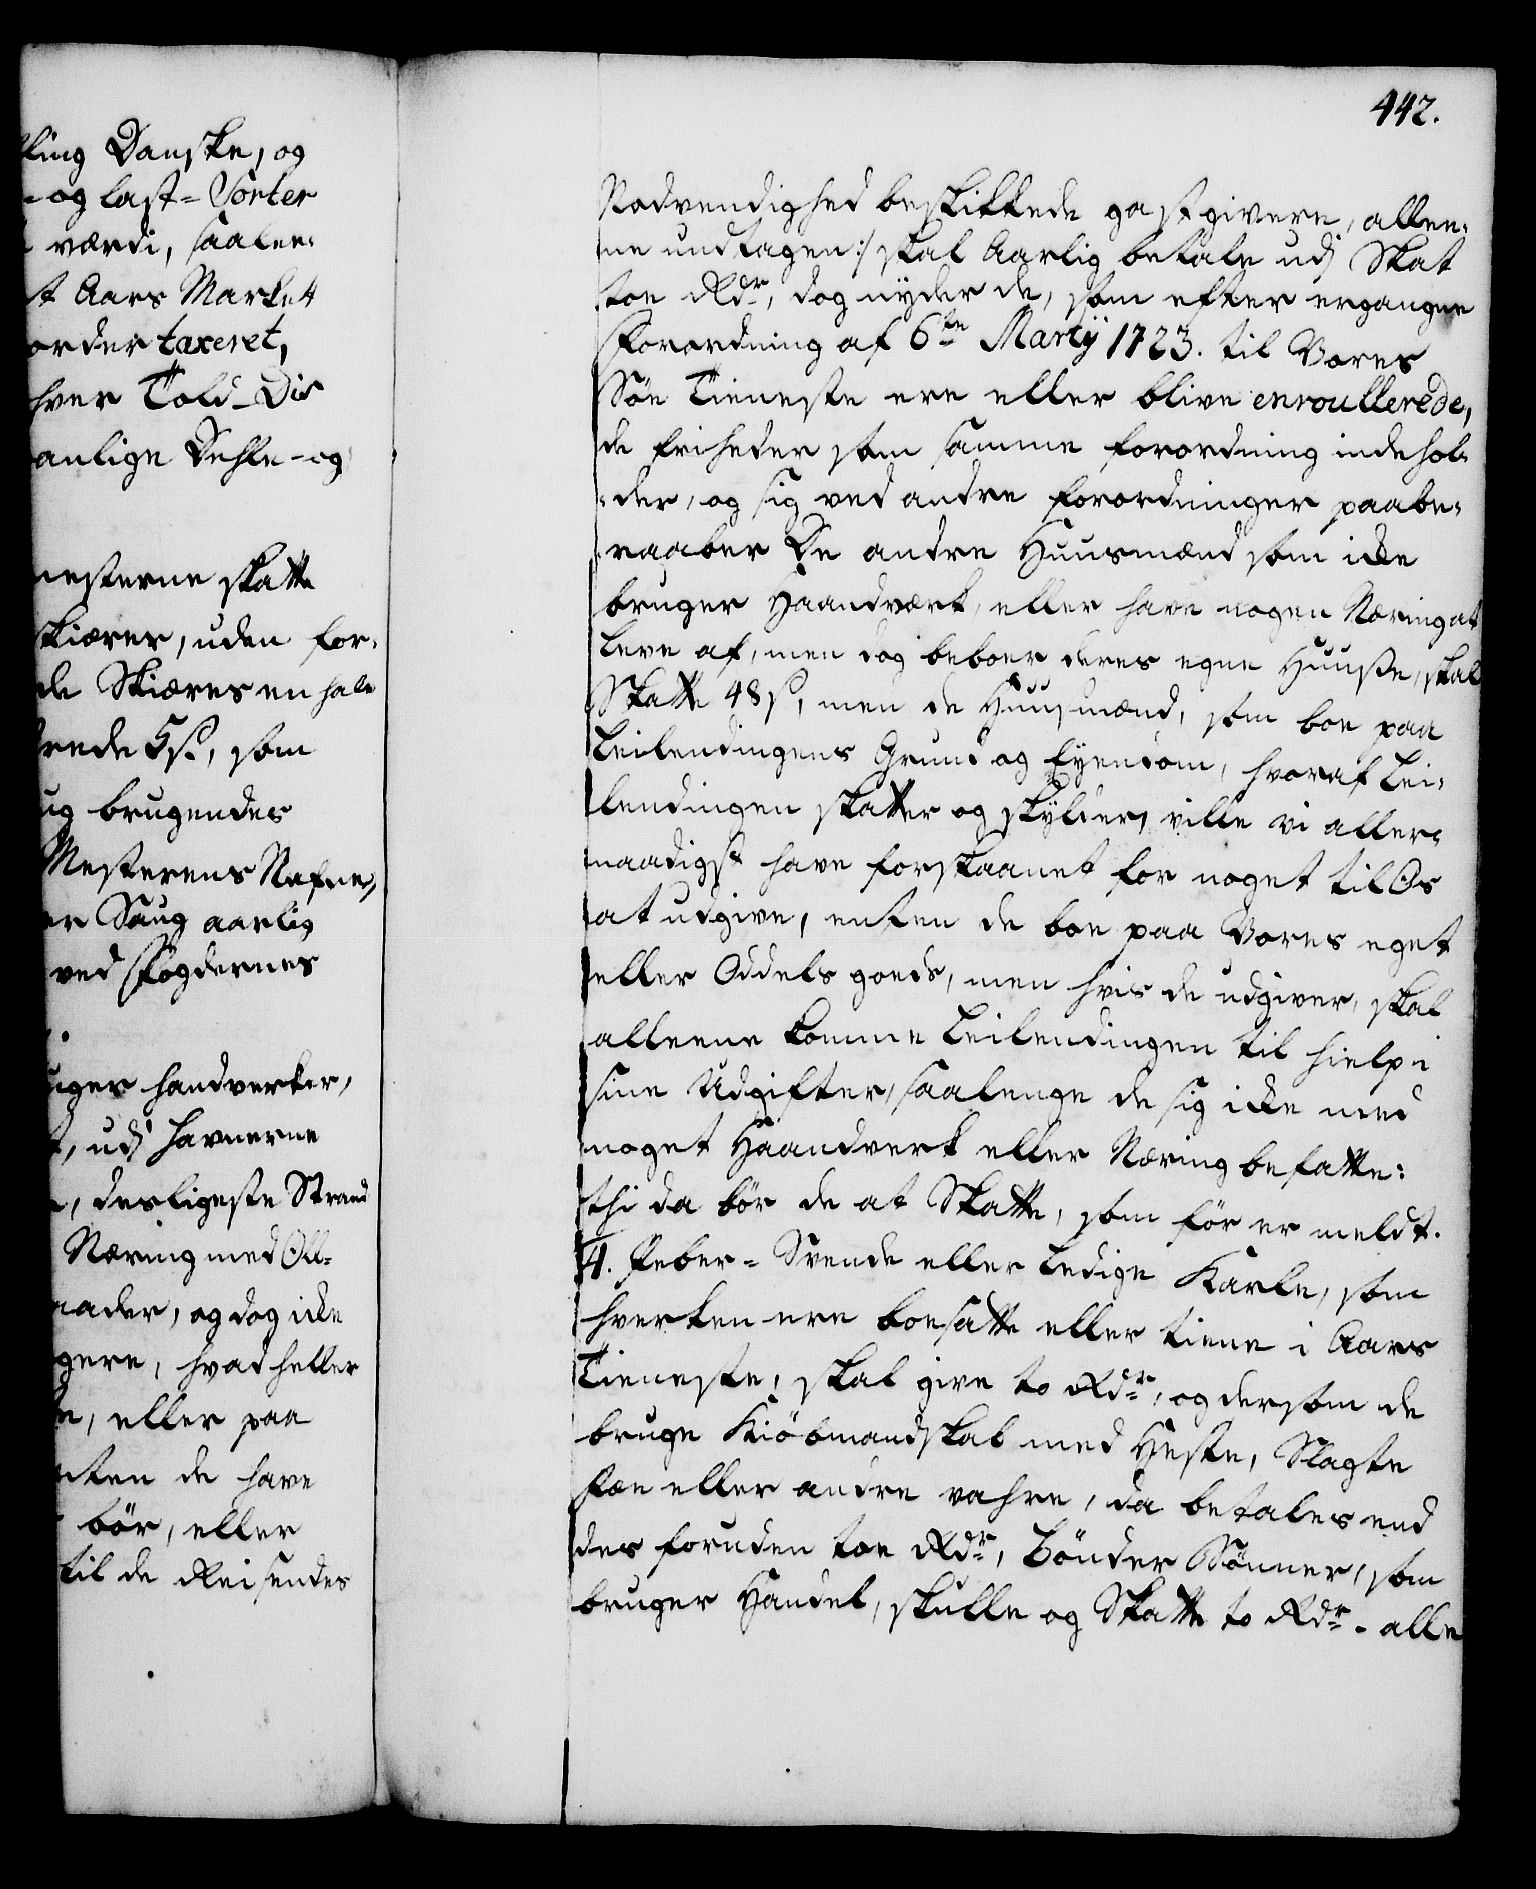 king Danske, og
- og last = Sorter
værdi, saalee:
t Aars Markett
order taxeret,
hver Told-Dis
anlige Dehle - og
nesterne skatte
skiærer, uden for:
de Skiæres en hale
rede 5 s., som
ug brugendes
Mesterens Nafne,
er Saug aarlig
ved Fogdernes
uger handverker,
t, udj Havnerne
, desligeste Strand
Næring med Oll-
aader, og dog icke
gere, hvad heller
e, eller paa
nten de have
bör, eller
til de Reisendes
442.
Nødvendighed beskikkede gastgivere, allee:
ne undtagen :/ skal Aarlig betale udj Skat
toe Rdr, dog nyder de, som efter ergangne
Forordning af 6te Martij 1723. til Vores
Söe Tieneste ere eller blive enroullerede,
de friheder som samme forordning indehol:
:der, og sig ved andre forordninger paabe:
:raaber De andre Huusmænd som icke
bruger Haandværk, eller have nogen Næring at
leve af, men dog beboer deres egne Huuse, skal
Skatte 48 s, men de Huusmænd, som boe paa
Leilendingens Grund og Eyendom, hvoraf Lei:
lendingen skatter og skylder, ville vi aller:
naadigst have forskaanet for noget til Os
at udgive, enten de boe paa Vores eget
eller Oddels goeds, men hvis de udgiver, skal
alleene komme Leilendingen til hielp i
sine Udgifter, saalenge de sig icke med
noget Haandverk eller Næring befatte:
thi da bör de at Skatte, som för er meldt.
4. Peber = Svende eller Ledige Karle, som
hverken ere boesatte eller tiene i Aars
Tieneste, skal give to Rdr, og dersom de
bruge Kiöbmandskab med Heste, Slagte
Fæe eller andre vahre, da betales end
des foruden toe Rdr, Bönder Sönner, som
bruger Handel, skulle og Skatte to Rdr. alle